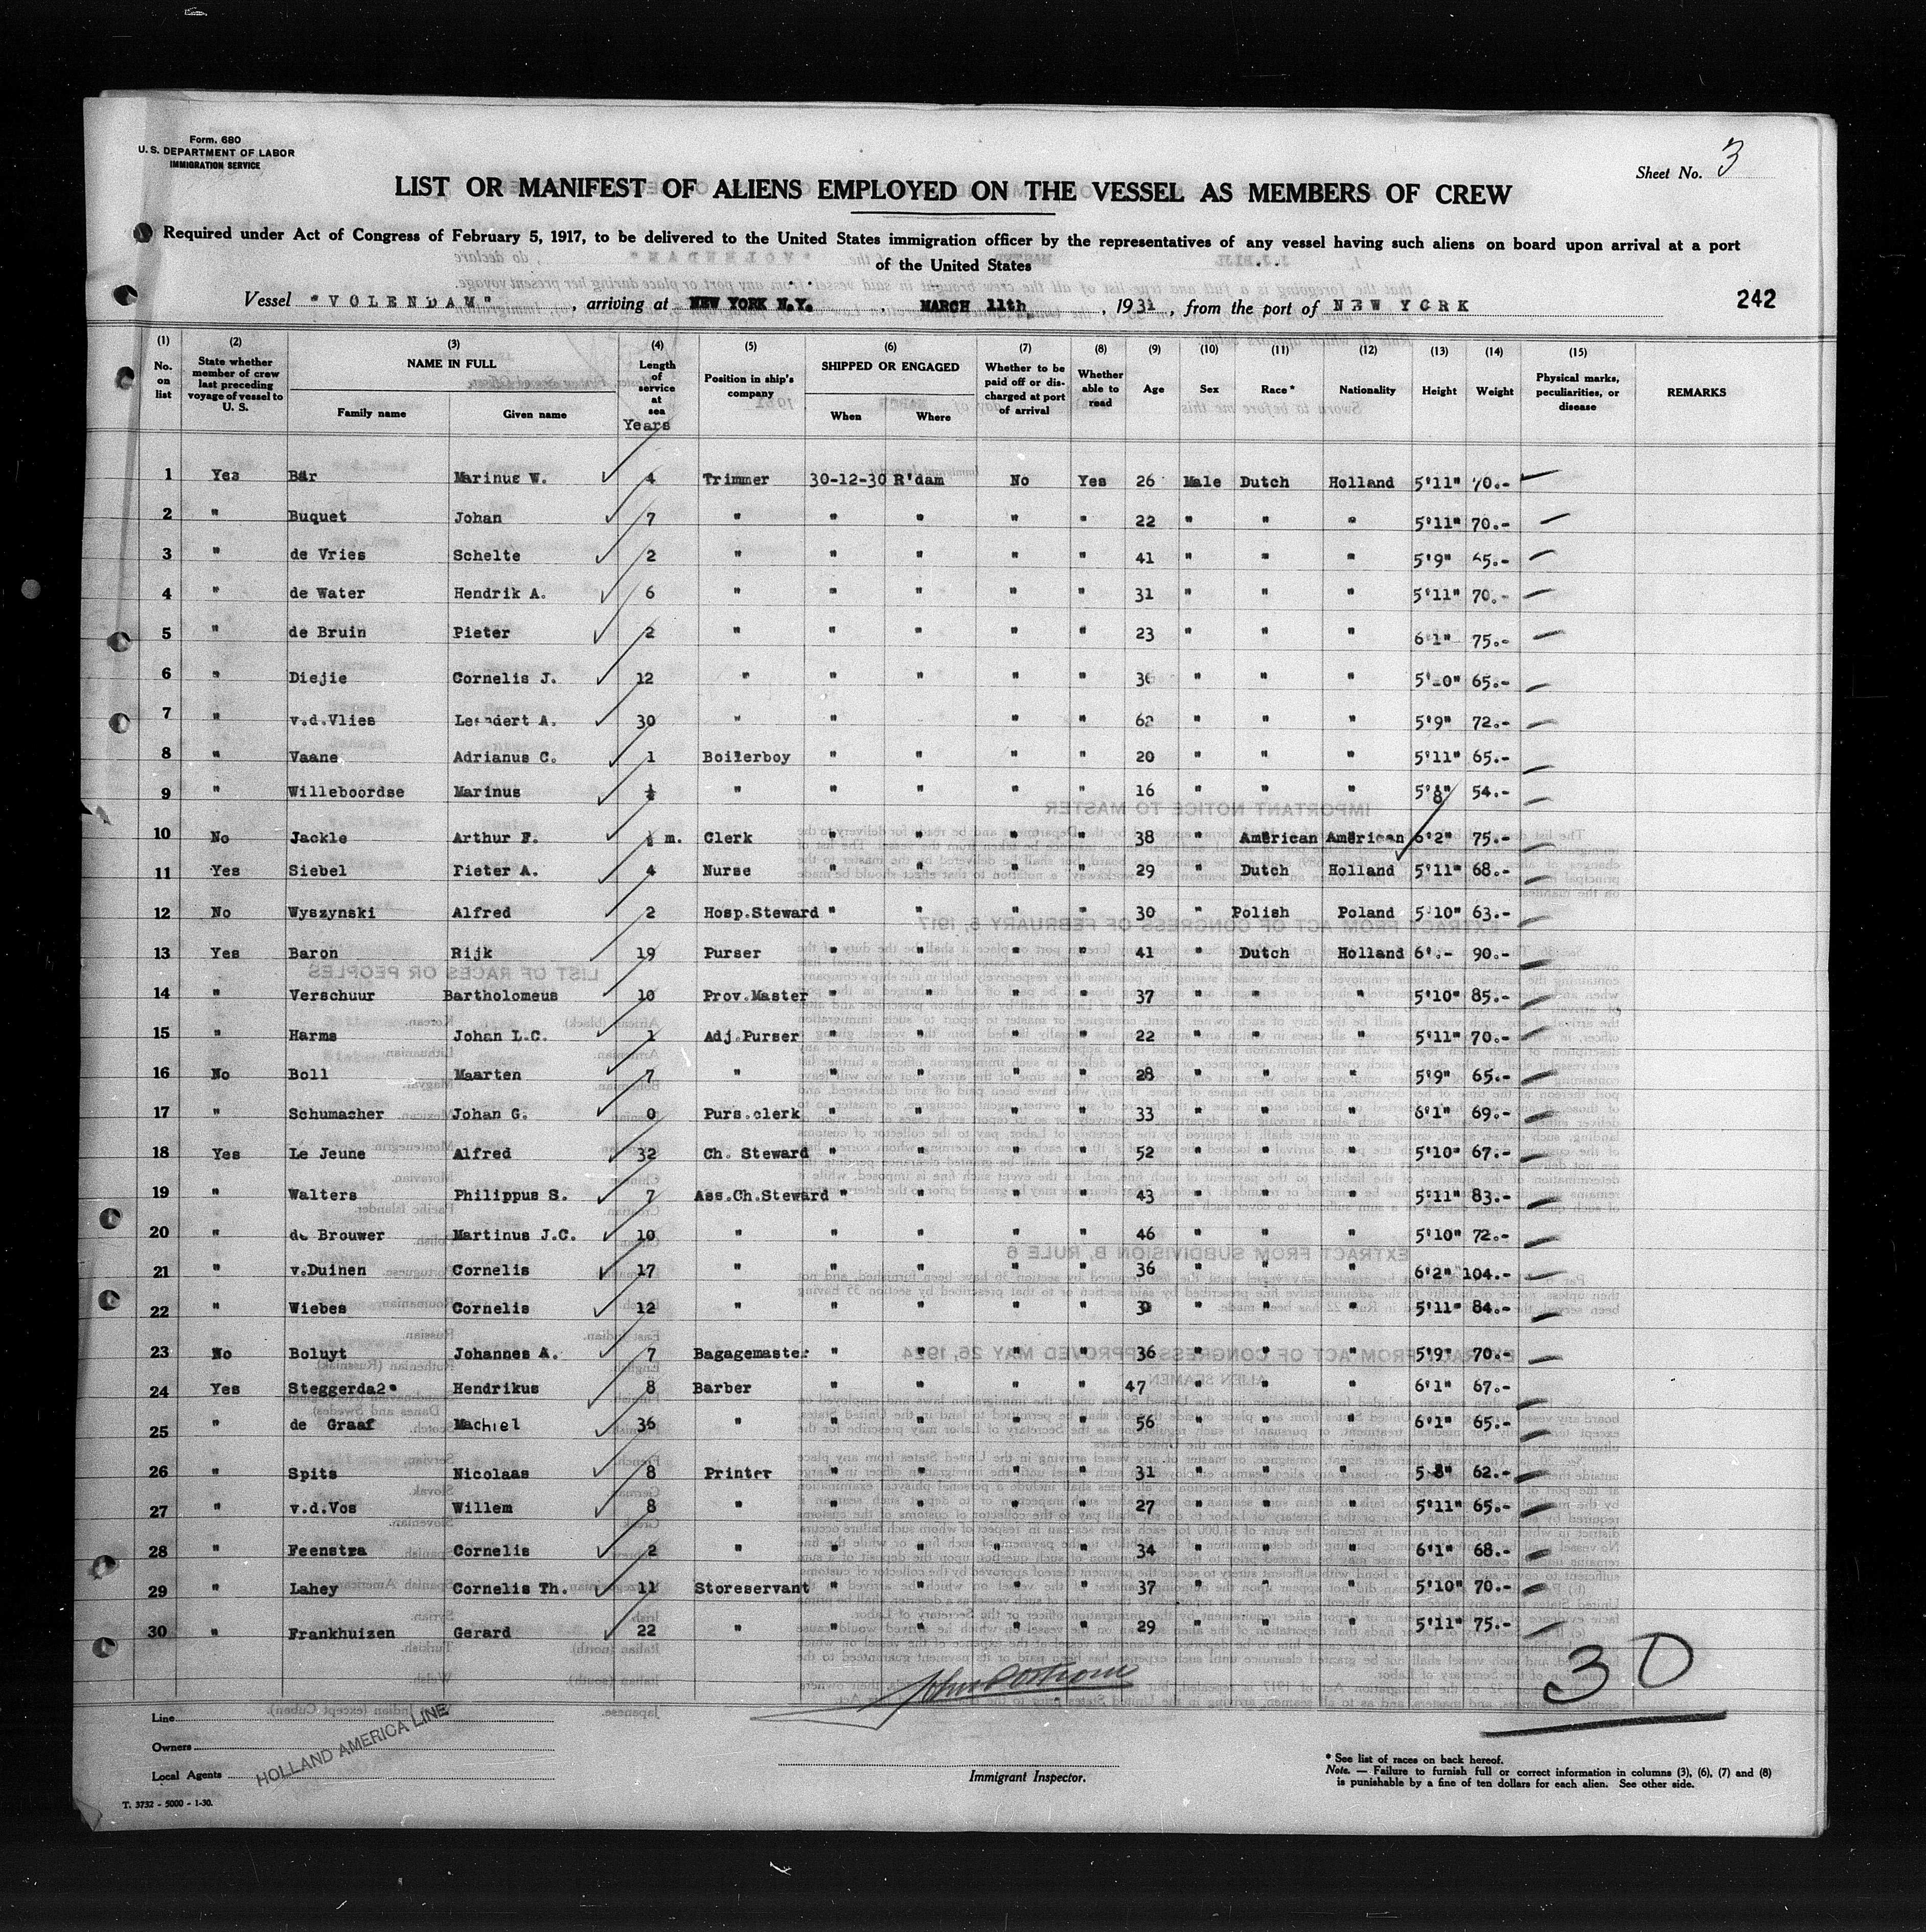 Form. 680
U. S. DEPARTMENT OF LABOR
IMMIGRATION SERVICE
Sheet No. 3
LIST OR MANIFEST OF ALIENS EMPLOYED ON THE VESSEL AS MEMBERS OF CREW
Required under Act of Congress of February 5, 1917, to be delivered to the United States immigration officer by the representatives of any vessel having such aliens on board upon arrival at a port
of the United States
Vessel "VOLENDAM", arriving at NEW YORK N.Y., MARCH 11th, 1931, from the port of NEW YORK
242
(1) No. on list
(2) State whether member of crew last preceding voyage of vessel to U. S.
(3) NAME IN FULL Family name Given name
(4) Length of service at sea Years
(5) Position in ship's company
(6) SHIPPED OR ENGAGED When Where
(7) Whether to be paid off or discharged at port of arrival
(8) Whether able to read
(9) Age
(10) Sex
(11) Race *
(12) Nationality
(13) Height
(14) Weight
(15) Physical marks, peculiarities, or disease
REMARKS
1 Yes Bär Marinus W. 4 Trimmer 30-12-30 R'dam No Yes 26 Male Dutch Holland 5'11" 70.-
2 " Buquet Johan 7 " " " " " 22 " " " 5'11" 70.-
3 " de Vries Schelte 2 " " " " " 41 " " " 5'9" 65.-
4 " de Water Hendrik A. 6 " " " " " 31 " " " 5'11" 70.-
5 " de Bruin Pieter 2 " " " " " 23 " " " 6'1" 75.-
6 " Diejie Cornelis J. 12 " " " " " " " " 65.-
7 " v.d.Vlies Leendert A. 30 " " " " 62 " " " 5'9" 72.-
8 " Vaane Adrianus C. 1 Boilerboy " " " " 20 " " " 5'11" 65.-
9 " Willeboordse Marinus ½ " " " " " 16 " " " 5'8" 54.-
10 No Jackle Arthur F. ½ m. Clerk " " " " 38 " American American 6'2" 75.-
11 Yes Siebel Pieter A. 4 Nurse " " " " 29 " Dutch Holland 5'11" 68.-
12 No Wyszynski Alfred 2 Hosp.Steward " " " " 30 " Polish Poland 5'10" 63.-
13 Yes Baron Rijk 19 Purser " " " " 41 " Dutch Holland 6'.- 90.-
14 " Verschuur Bartholomeus 10 Prov.Master " " " " 37 " " " 5'10" 85.-
15 " Harms Johan L.C. 1 Adj.Purser " " " " 22 " " " 5'11" 70.-
16 No Boll Maarten 7 " " " " " 28 " " " 5'9" 65.-
17 " Schumacher Johan G. 0 Purs.clerk " " " " 33 " " " 6'1" 69.-
18 Yes Le Jeune Alfred 32 Ch. Steward " " " " 52 " " " 5'10" 67.-
19 " Walters Philippus S. 7 Ass.Ch.Steward " " " " 43 " " " 5'11" 83.-
20 " de Brouwer Martinus J.C. 10 " " " " " 46 " " " 5'10" 72.-
21 " v.Duinen Cornelis 17 " " " " " 36 " " " 6'2" 104.-
22 " Wiebes Cornelis 12 " " " " " " " " 5'11" 84.-
23 No Boluyt Johannes A. 7 Bagagemaster " " " " 36 " " " 5'9" 70.-
24 Yes Steggerda2e Hendrikus 8 Barber " " " " 47 " " " 6'1" 67.-
25 " de Graaf Machiel 36 " " " " " 56 " " " 6'1" 65.-
26 " Spits Nicolaas 8 Printer " " " " 31 " " " 5'8" 62.-
27 " v.d.Vos Willem 8 " " " " " 27 " " " 5'11" 65.-
28 " Feenstra Cornelis 2 " " " " " 34 " " " 6'1" 68.-
29 " Lahey Cornelis Th. 11 Storeservant " " " " 37 " " " 5'10" 70.-
30 " Frankhuizen Gerard 22 " " " " " 29 " " " 5'11" 75.-
30
Line
Owners
Local Agents
HOLLAND AMERICA LINE
Immigrant Inspector.
* See list of races on back hereof.
Note. — Failure to furnish full or correct information in columns (3), (6), (7) and (8)
is punishable by a fine of ten dollars for each alien. See other side.
T. 3732 - 5000 - 1-30.